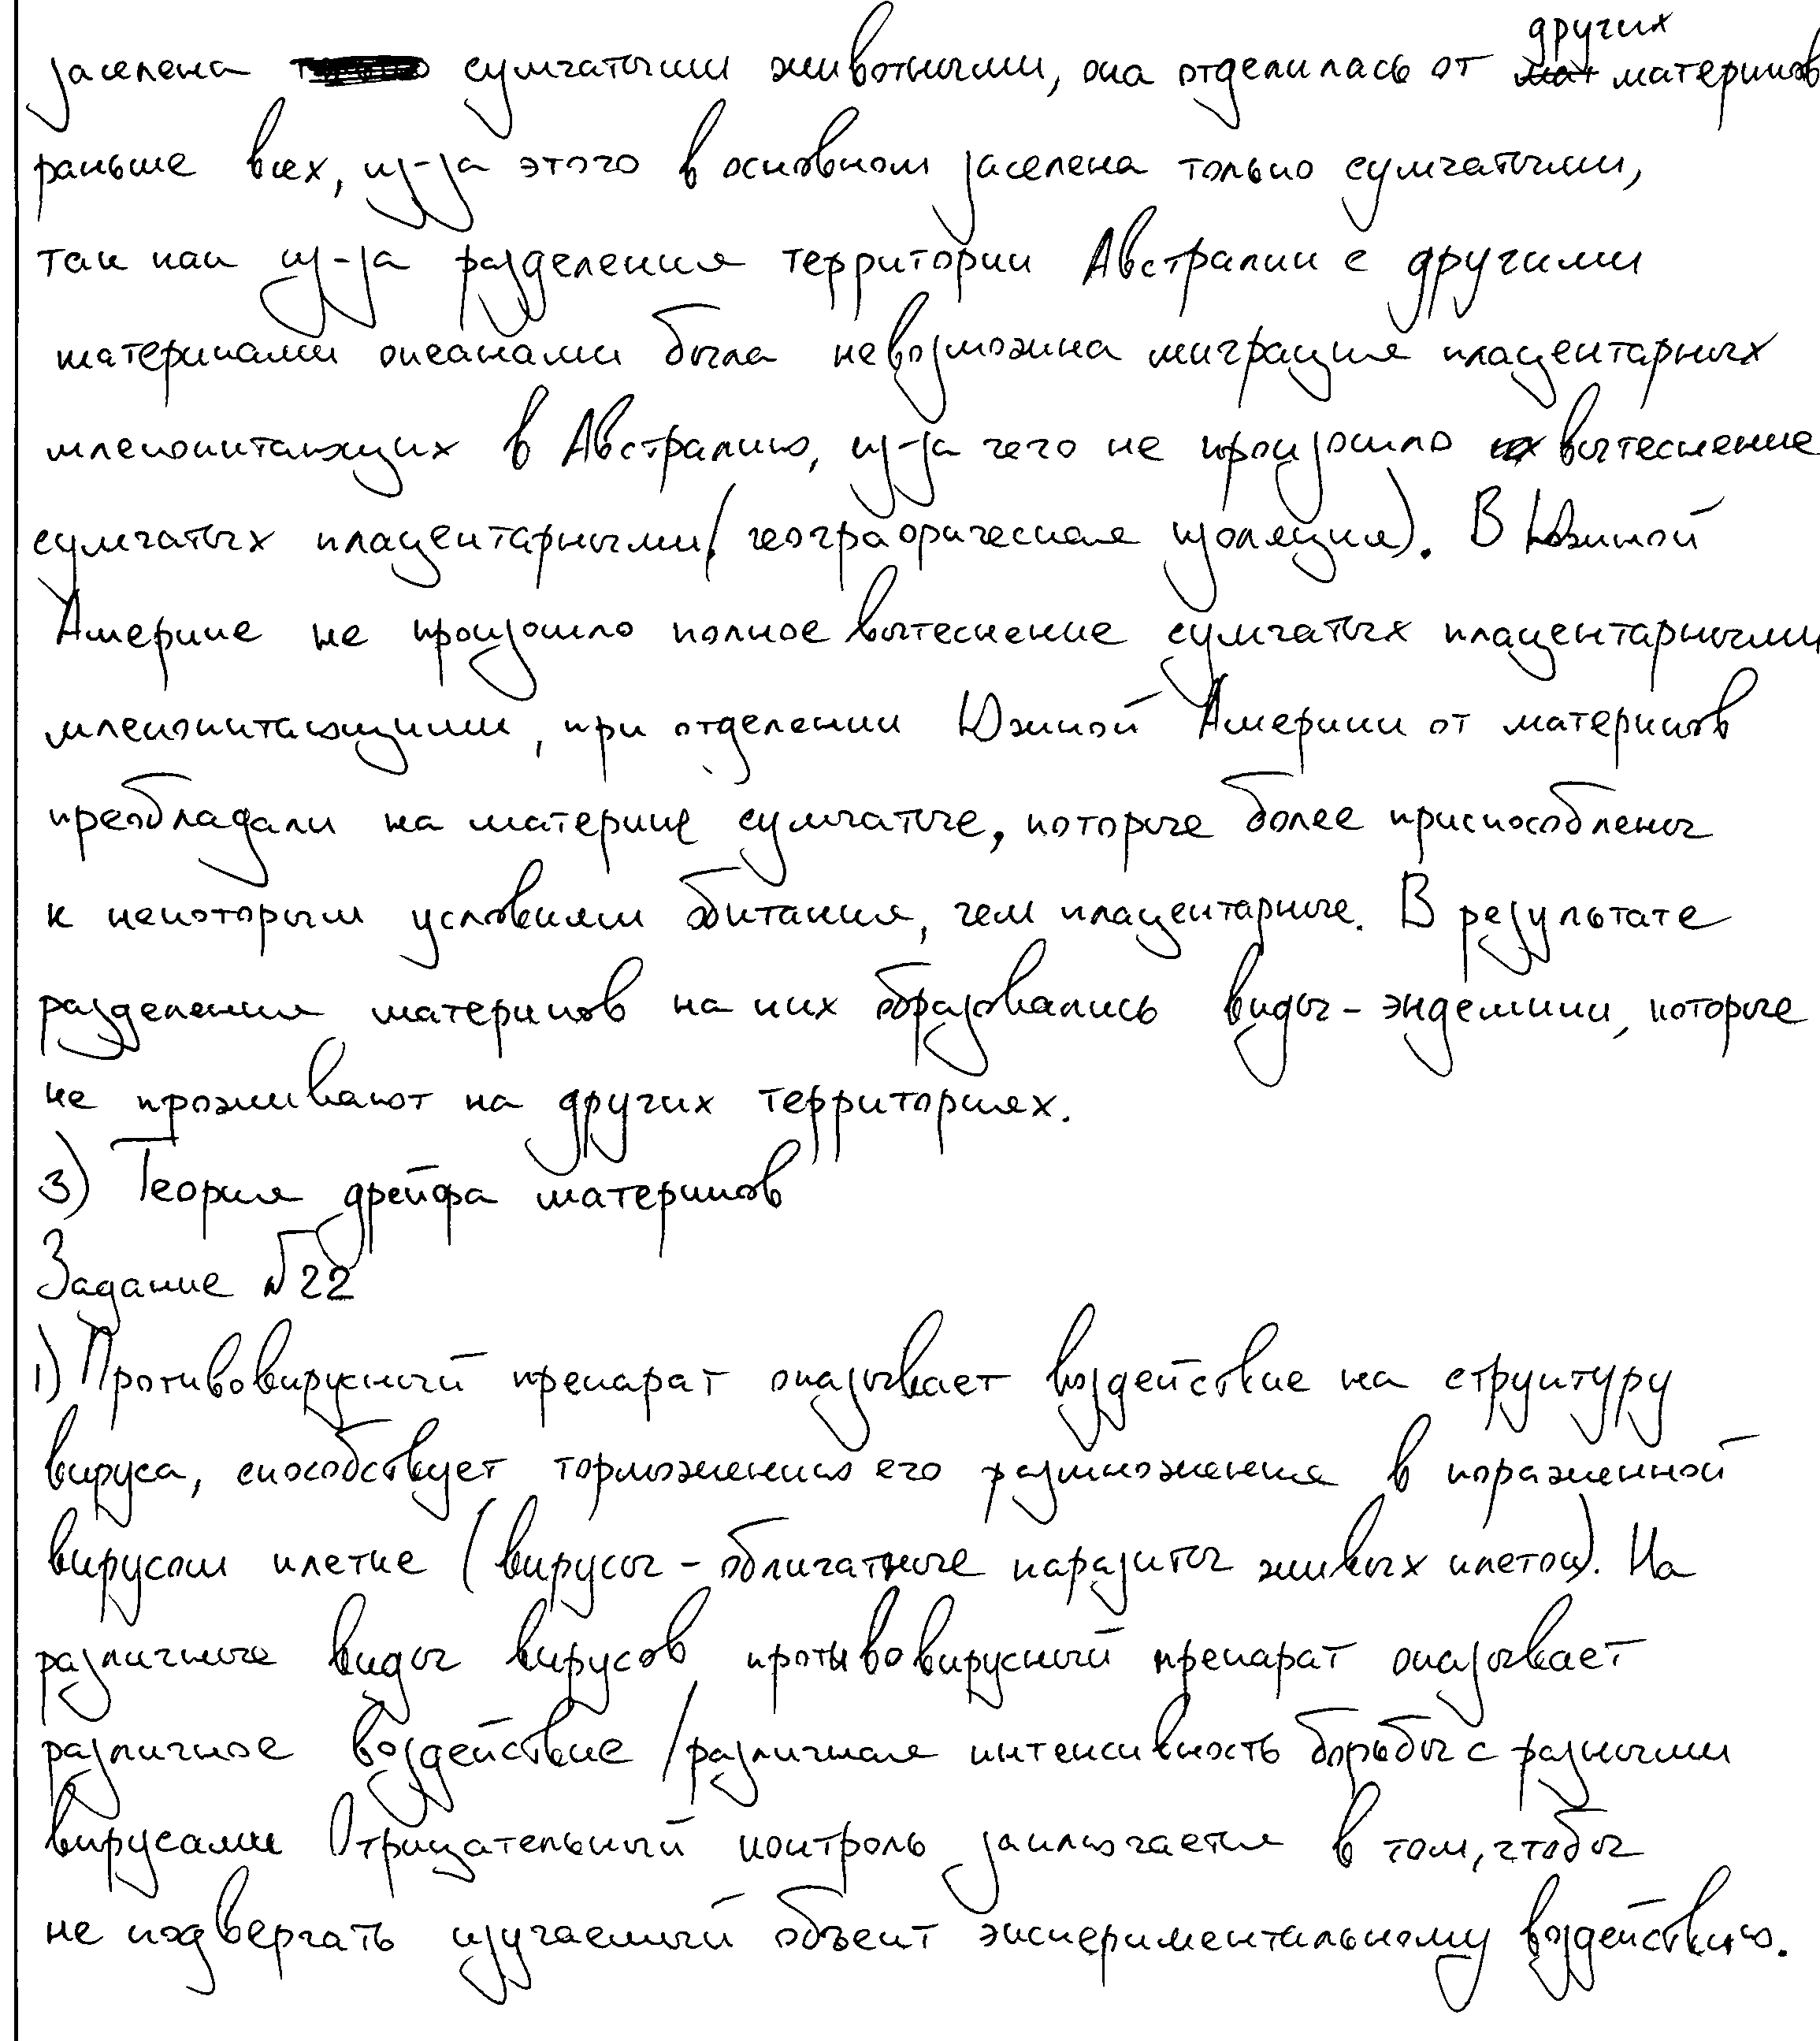 заселена сумчатыми животными, она отделилась от других материков
раньше всех, из-за этого в основном заселена только сумчатыми,
так как из-за разделения территории Австралии с другими
материками океанами была невозможна миграция плацентарных
млекопитающих в Австралию, из-за чего не произошло вытеснение
сумчатых плацентарными (географическая изоляция). В Южной
Америке не произошло полное вытеснение сумчатых плацентарными
млекопитающими, при отделении Южной Америки от материков
преобладали на материке сумчатые, которые более приспособлены
к некоторым условиям обитания, чем плацентарные. В результате
разделения материков на них образовались виды-эндемики, которые
не проживают на других территориях.
3) Теория дрейфа материков
Задание №22
1) Противовирусный препарат оказывает воздействие на структуру
вируса, способствует торможению его размножения в пораженной
вирусом клетке (вирусы - облигатные паразиты живых клеток). На
различные виды вирусов противовирусный препарат оказывает
различное воздействие /различная интенсивность борьбы с разными
вирусами Отрицательный контроль заключается в том, чтобы
не подвергать изучаемый объект экспериментальному воздействию.